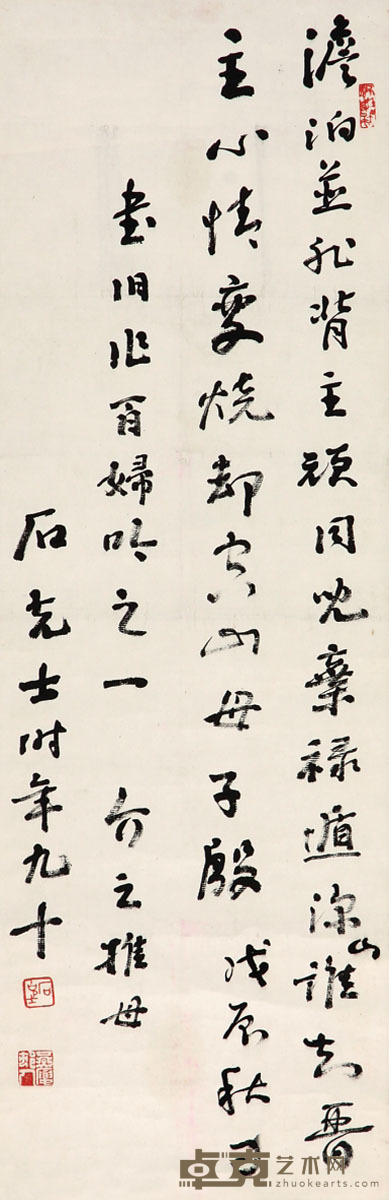 澹泊並非背主顽同児棄禄遁深山谁知晋
主心情变烧却空山母子殷 戊辰秋日
書旧作百婦吟之一 介之推母
石克士时年九十
卓克艺术网
zhuokearts.com